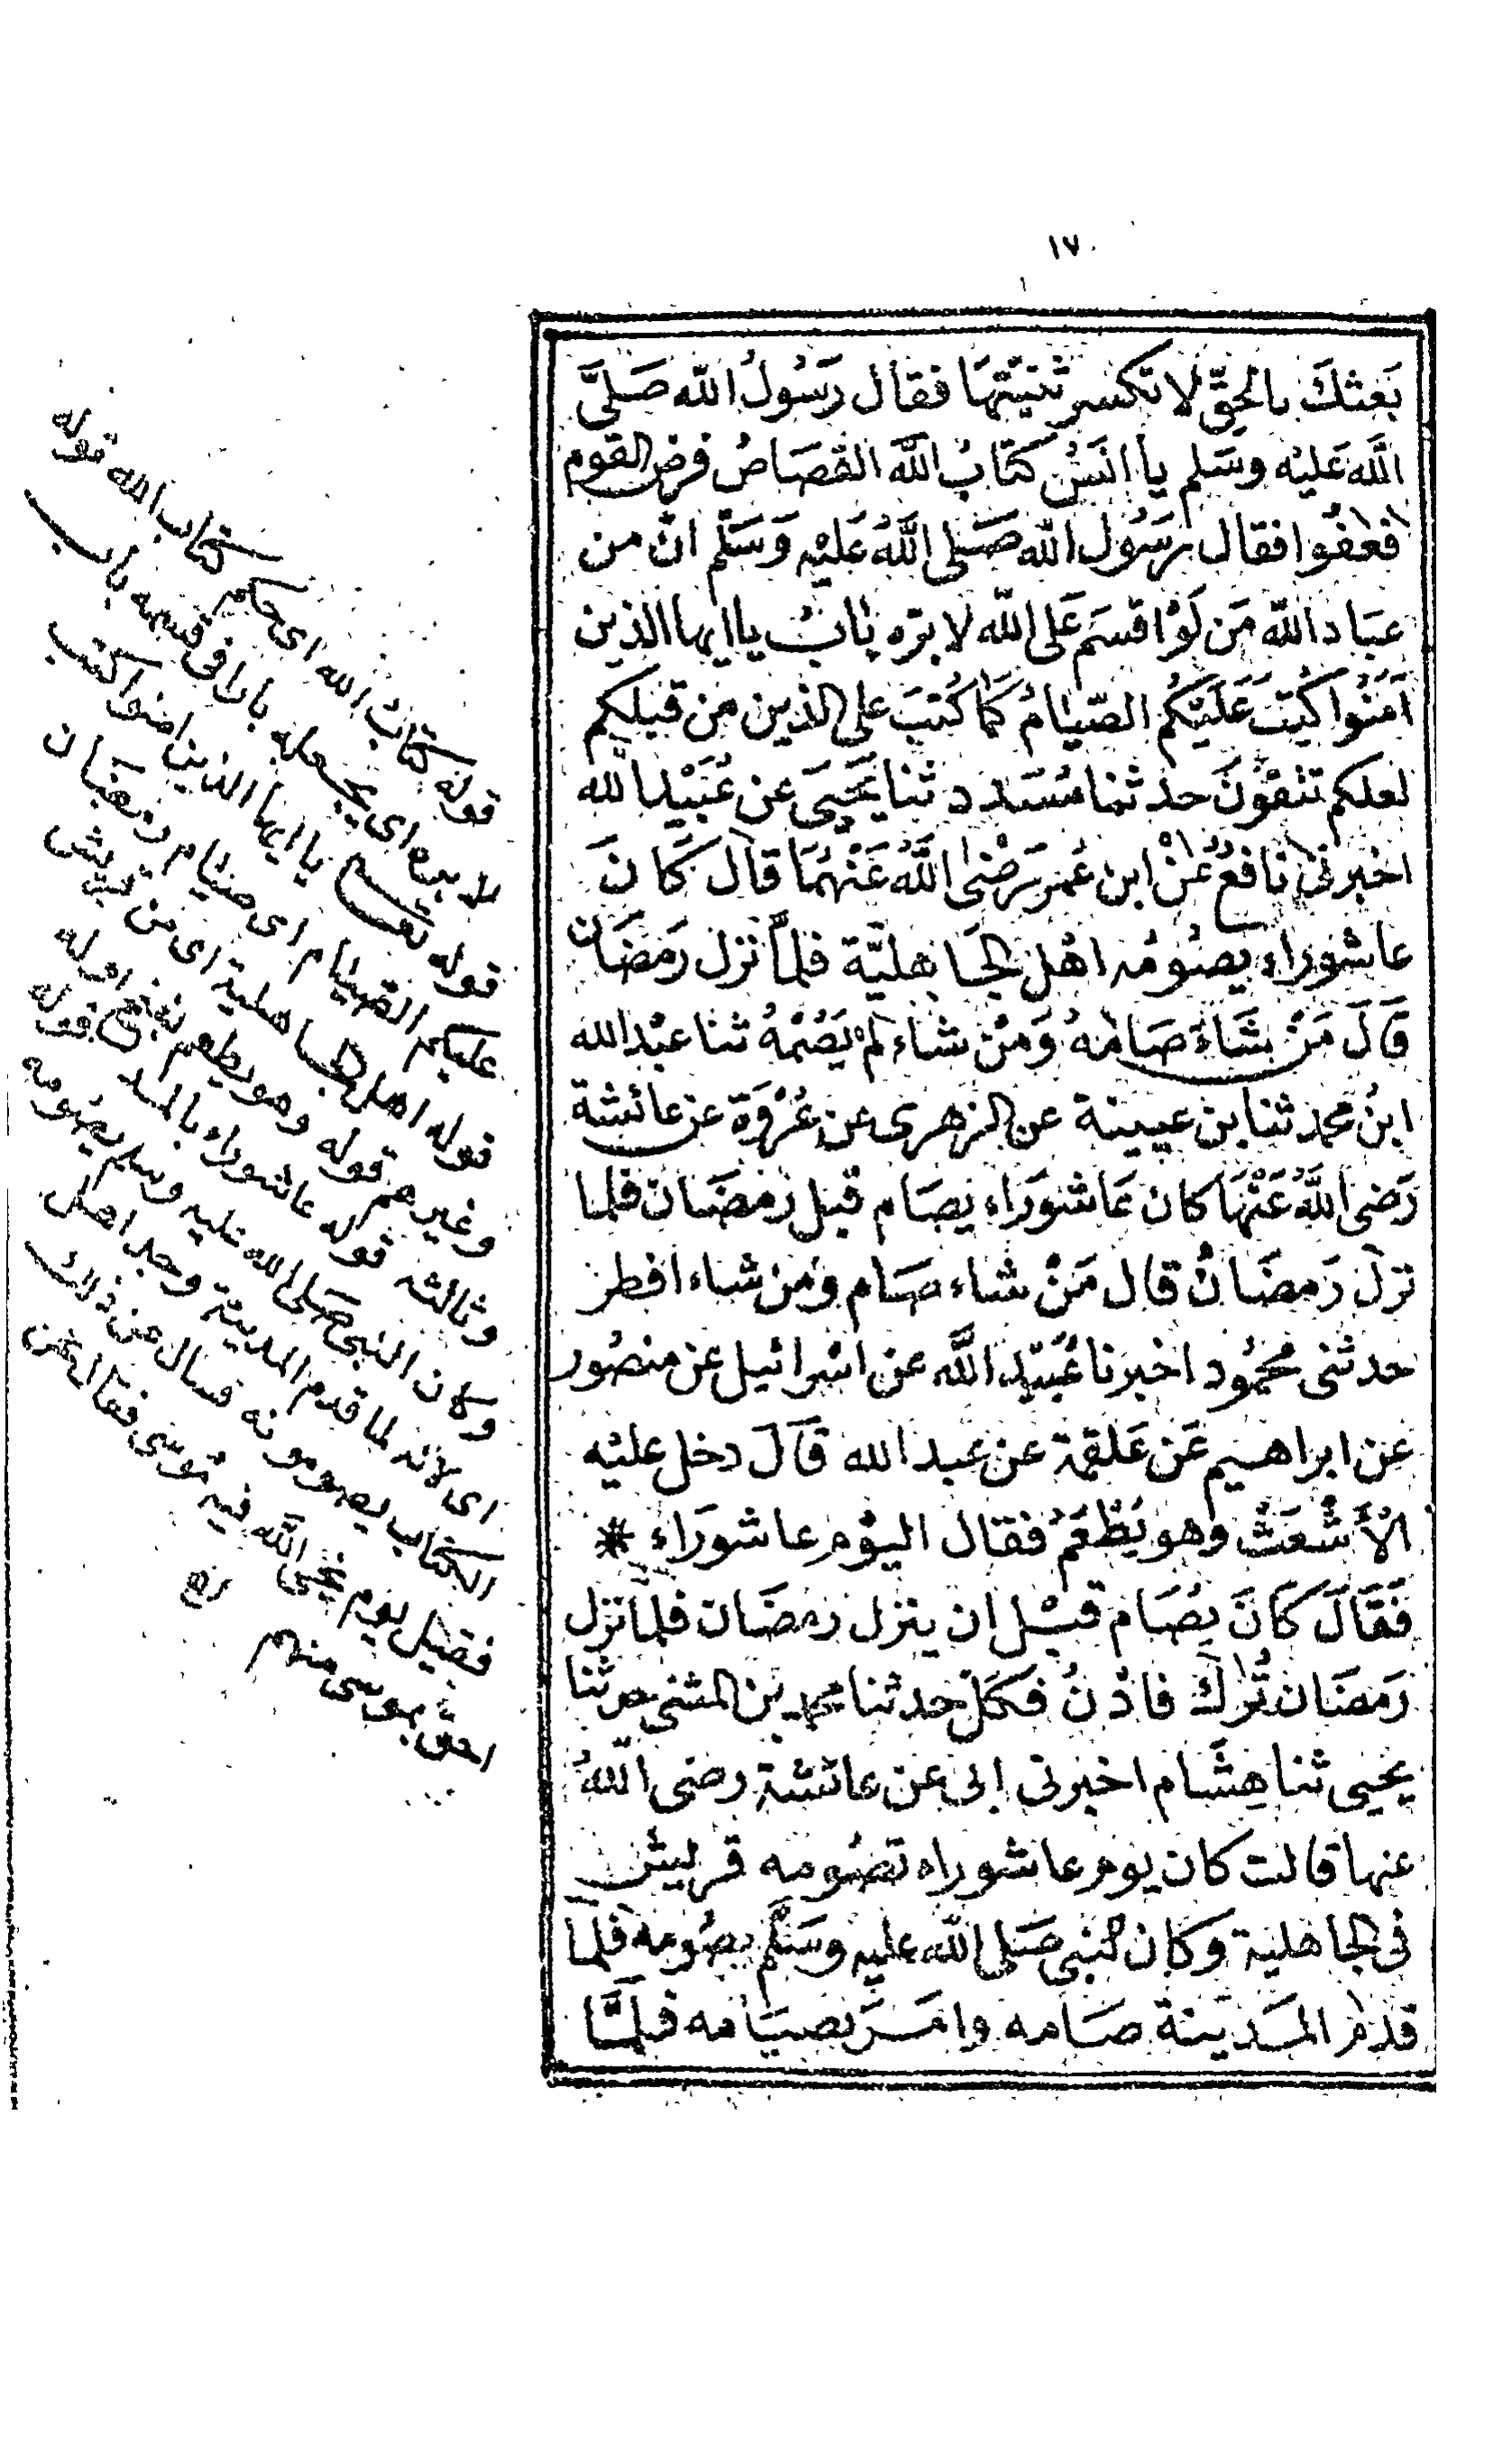 ١٧٠
بَعَثكَ بالحَقِّ لا تكسر ثنيّتُهَا فقال رَسُولُ الله صَلىَّ
اللهَ عَليْه وسَلم يا انَسُ كتَابُ اللهَ القصَاصُ فرضى القوم
فعَفَوا فقال رَسُول الله صَلى اللَّهُ عَليْه وَسَلّم انّ من
عبَاد الله مَن لَوْ اقسَم عَلى الله لابرّه بَابُ يا ايها الذين
آمَنُوا كُتِبَ عَلَيْكُم الصّيَامُ كَمَا كُتبَ على الذين من قبلكم
لعلكم تتقوُنَ حدثنا مُسَدد ثنا يَحْيَى عن عُبَيْد الله
اخبرنى نَافعٌ عَنْ ابن عُمَر رَضْىَ اللَّهُ عَنْهُمَا قال كَانَ
عاشورَاء يصُومُه اهْل الجَاهليّة فلمَّا نزل رَمضَان
قَالَ مَنْ شَاءَ صَامَهُ وَمَنْ شاء لم يَصُمْهُ ثنا عبْد الله
ابنُ محمد ثنا بن عيينة عن الزهرى عن عُرْوَة عن عائشة
رَضىَ اللَّهُ عَنْهَا كان عَاشورَاء يصَام قبل رمضَان فلما
نزل رَمضَانُ قال مَنْ شاء صَام وَمن شاء افطر
حدثنى محمُود اخبرنا عُبَيْد اللَّه عن اسْرائيل عن منصُور
عن ابراهيم عَن عَلقمة عن عبد الله قَالَ دخل عليْه
الْأَشْعَثُ وهو يَطْعَمُ فقال اليوْم عاشورَاء *
فَقَالَ كَانَ يصُام قبْل ان ينزل رمضَان فلمّا نزل
رَمضَان تُركَ فادْنُ فكلْ حدثنا محمد بن المثنى حدثنا
يحيى ثنا هِشَام اخبرنى ابى عن عائشة رضى اللَّهُ
عنها قالت كان يوم عاشوراء تصُومه قريش
فى الجاهلية وكان النبى صَلى اللَّه عليه وسَلّم يصُومه فلمّا
قدمَ المَدينة صَامه وامَرَ بصيَامه فلمَّا
قوله كتابُ الله اى حكم كتاب الله قوله
لابره اى يجعله بارا فى قسمه باب
قوله تعـ يا ايها الذين امنوا كتب
عليكم الصيام اى صيام رمضان
قوله اهل الجاهلية اى من قريش
وغيرهم قوله وهو يطعم بفتح اوله
وثالثه قوله عاشوراء بالمد قوله
وكان النبى صلى الله عليه وسلم يصُومه
اى لانه لما قدم المدينة وجد اهل
الكتاب يصومونه فسال عن ذلك
فقيل يوم نجى الله فيه موسى فقال نحن
احق بموسى منهم